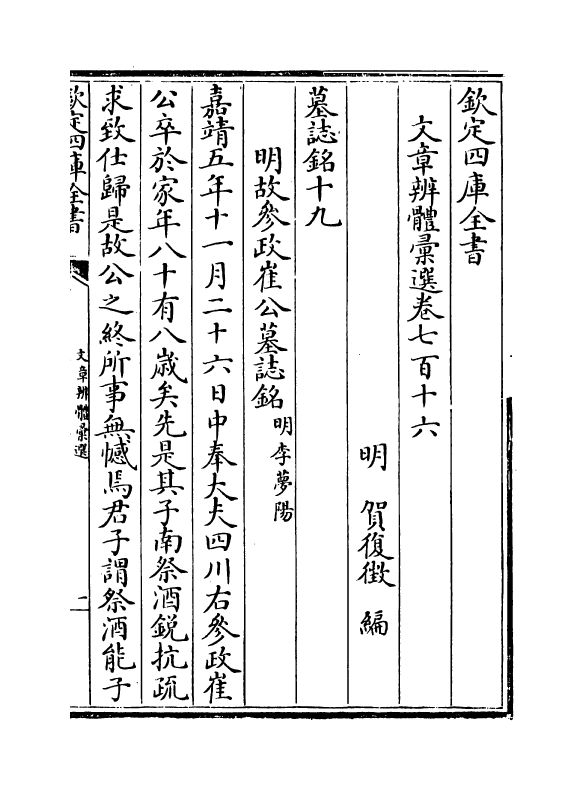 欽定四庫全書
文章辨體彙選卷七百十六
明　賀復徴　編
墓誌銘十九
明故參政崔公墓誌銘明李夢陽
嘉靖五年十一月二十六日中奉大夫四川右參政崔
公卒於家年八十有八歲矣先是其子南祭酒鋭抗疏
求致仕歸是故公之終所事無憾焉君子謂祭酒能子
欽定四庫全書
文章辨體彙選
二